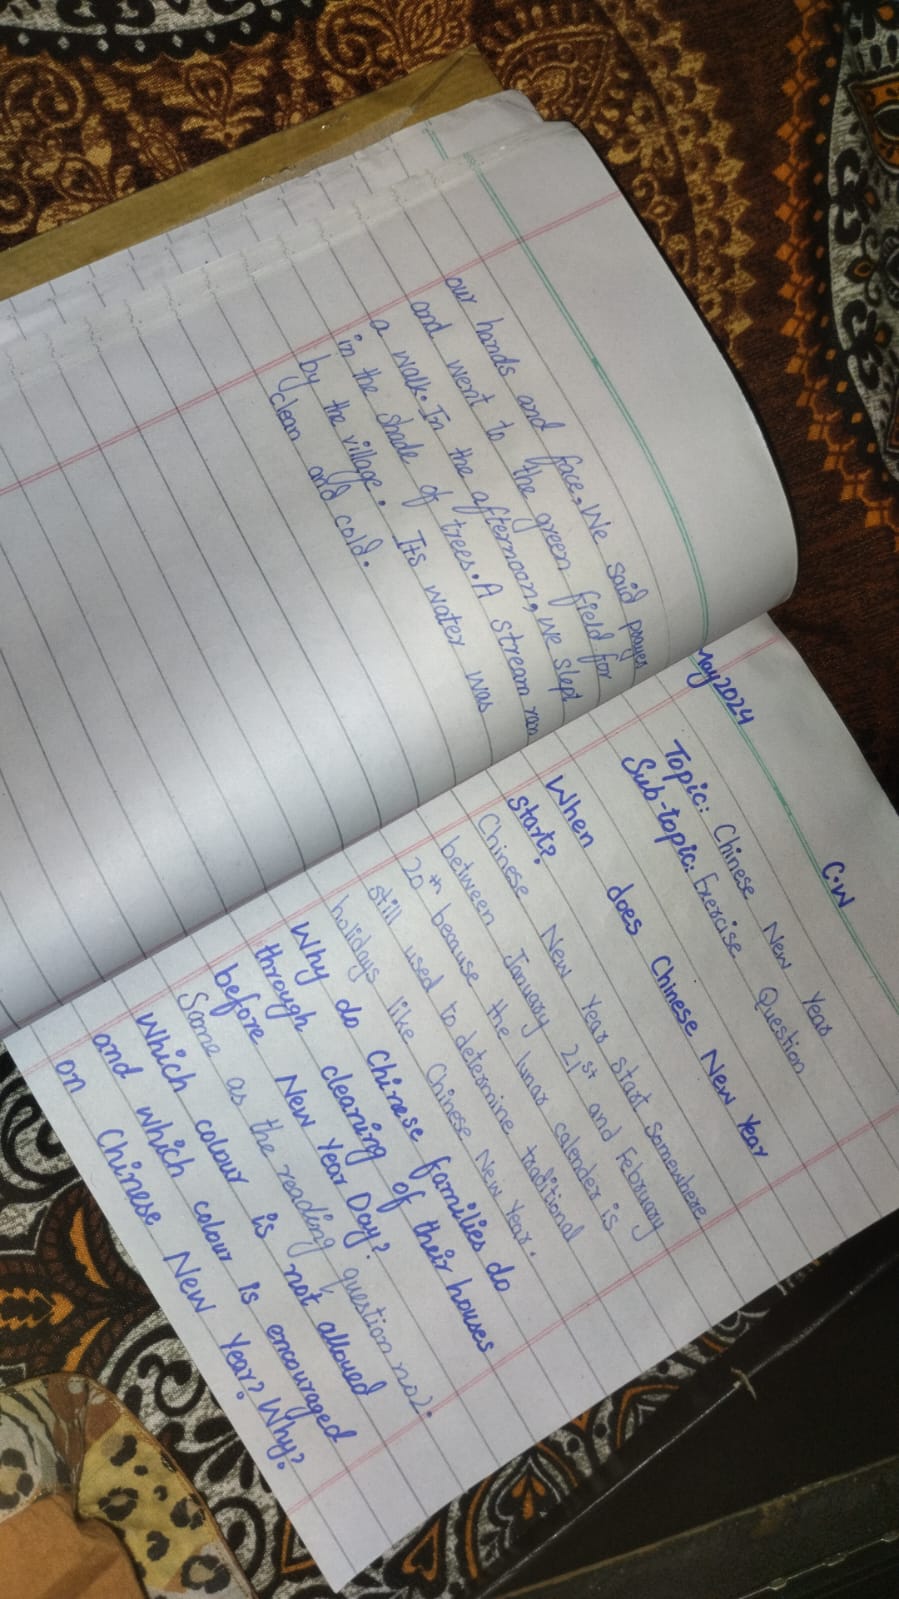 our hands and face, We said prayer
and went to the green field for
a walk. In the afternoon, we slept
in the shade of trees. A stream ran
by the village. Its water was
clean and cold.
C.W
May 2024
Topic: Chinese New Year
Sub-topic: Exercise Question
When does Chinese New Year
start?
Chinese New Year start somewhere
between January 21st and February
20th because the lunar calender is
still used to determine traditional
holidays like Chinese New Year.
Why do Chinese families do
through cleaning of their houses
before New Year Day?
Same as the reading question no2.
Which colour is not allowed
and which colour is encouraged
on Chinese New Year? Why?